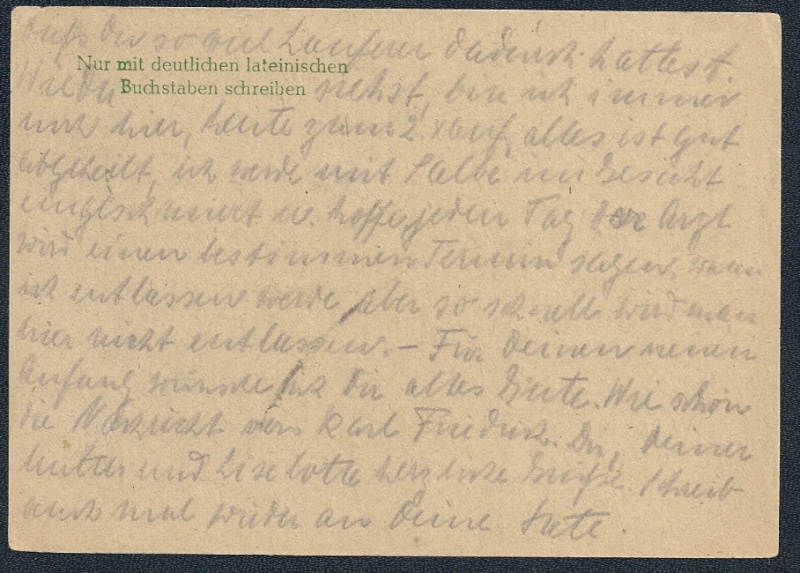 daß Du so viel Lauferei dadurch hattest.
Nur mit deutlichen lateinischen
Buchstaben schreiben
Wie Du siehst, bin ich immer
noch hier, heute zum 2. x auf, alles ist gut
abgeheilt, ich werde mit Salbe im Gesicht
eingeschmiert u. hoffe jeden Tag der Arzt
wird einen bestimmen Termin sagen, wann
ich entlassen werde, aber so schnell wird man
hier nicht entlassen. – Für Deinen neuen
Anfang wünsche ich Dir alles Gute. Wie schön
die Nachricht von Karl Friedrich. Dir, Deiner
Mutter und Liselotte herzliche Grüße. Schreib
auch mal wieder an Deine